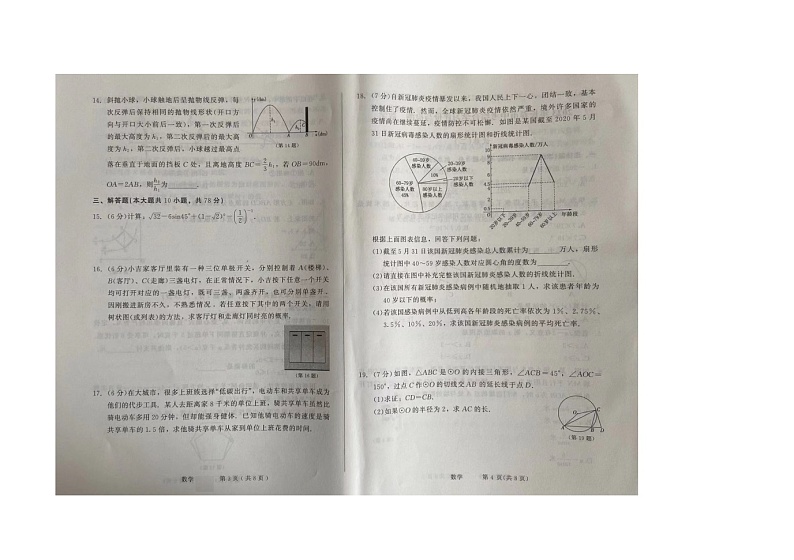 14. 斜抛小球,小球触地后呈抛物线反弹,每
次反弹后保持相同的抛物线形状(开口方
向与开口大小前后一致),第一次反弹后
的最大高度为h₁,第二次反弹后的最大高
度为h₂,第二次反弹后,小球越过最高点
落在垂直于地面的挡板C处,且离地高度BC=2/3h₁,若OB=90dm,
OA=2AB,则h₂/h₁为______.
(第14题)
三、解答题(本大题共10小题,共78分)
15. (6分)计算:√32-6sin45°+(1-√2)⁰-(1/2)⁻¹.
16. (6分)小吉家客厅里装有一种三位单极开关,分别控制着A(楼梯)、
B(客厅)、C(走廊)三盏电灯,在正常情况下,小吉按下任意一个开关
均可打开对应的一盏电灯,既可三盏、两盏齐开,也可分别单盏开.
因刚搬进新房不久,不熟悉情况.若任意按下其中的两个开关,请用
树状图(或列表)的方法,求客厅灯和走廊灯同时亮的概率.
(第16题)
17. (6分)在大城市,很多上班族选择“低碳出行”,电动车和共享单车成为
他们的代步工具.某人去距离家8千米的单位上班,骑共享单车虽然比
骑电动车多用20分钟,但却能强身健体.已知他骑电动车的速度是骑
共享单车的1.5倍,求他骑共享单车从家到单位上班花费的时间.
数学 第3页(共8页)
18. (7分)自新冠肺炎疫情暴发以来,我国人民上下一心,团结一致,基本
控制住了疫情.然而,全球新冠肺炎疫情依然严重,境外许多国家的
疫情尚在继续蔓延,疫情防控不可松懈.如图是某国截至2020年5月
31日新冠病毒感染人数的扇形统计图和折线统计图.
40~59岁
感染人数
20~39岁
感染人数
10%
20岁以下
感染人数
60~79岁
感染人数
45%
80岁以上
感染人数
新冠病毒感染人数/万人
20岁以下
20~39岁
40~59岁
60~79岁
80岁以上
年龄段
根据上面图表信息,回答下列问题:
(1)截至5月31日该国新冠肺炎感染总人数累计为______万人,扇形
统计图中40~59岁感染人数对应圆心角的度数为______;
(2)请直接在图中补充完整该国新冠肺炎感染人数的折线统计图;
(3)在该国所有新冠肺炎感染病例中随机地抽取1人,求该患者年龄为
40岁以下的概率;
(4)若该国新冠肺炎感染病例中从低到高各年龄段的死亡率依次为1%、2.75%、
3.5%、10%、20%,求该国新冠肺炎感染病例的平均死亡率.
19. (7分)如图,△ABC是⊙O的内接三角形,∠ACB=45°,∠AOC=
150°,过点C作⊙O的切线交AB的延长线于点D.
(1)求证:CD=CB.
(2)如果⊙O的半径为2,求AC的长.
(第19题)
数学 第4页(共8页)